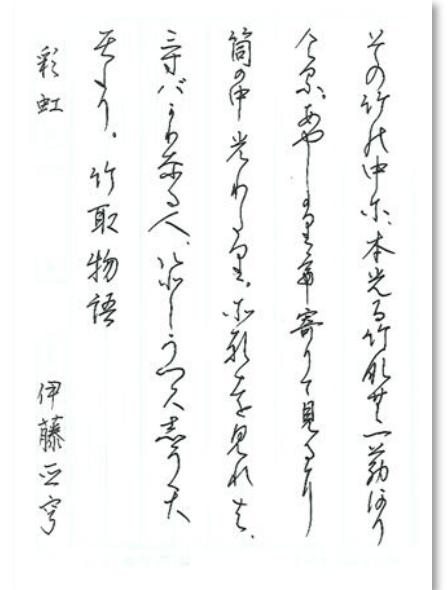 その竹の中に、本光る竹なむ一筋あり
ける、あやしがりて寄りて見るに
筒の中光りたり、それを見れば、
三寸バかりなる人、いとうつくしうて
ゐたり。竹取物語
彩虹 伊藤